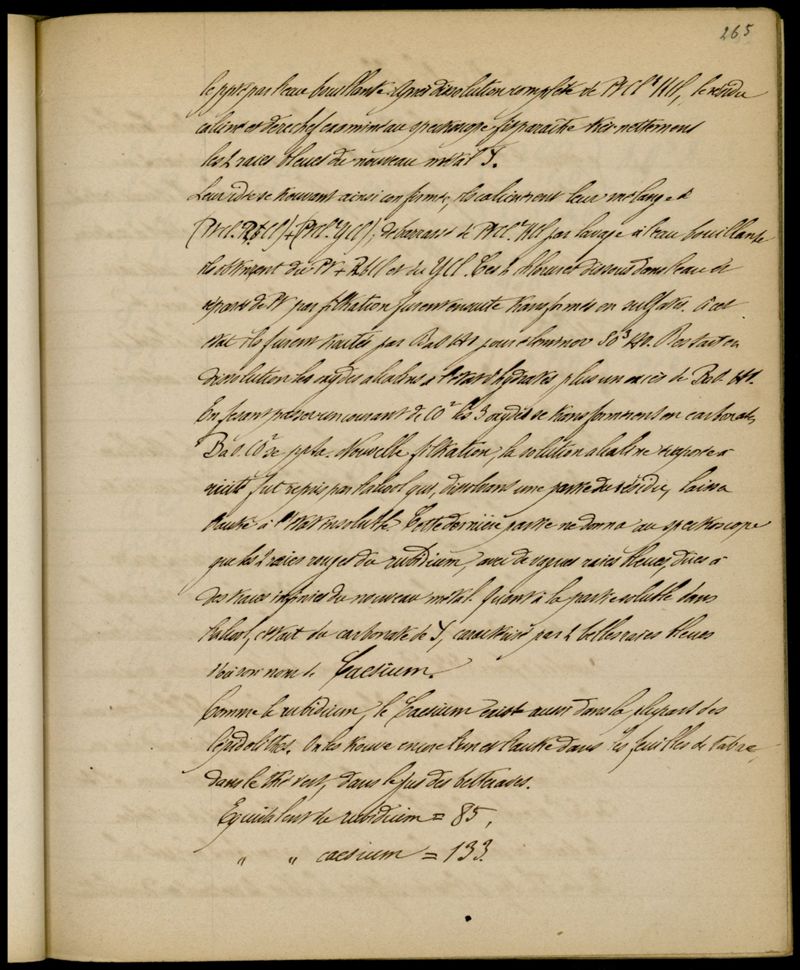 265
le ppté par l'eau bouillante. Après dissolution complète de PtCl² KCl, le résidu
calciné et derechef examiné au spectroscope fit paraître très nettement
les 2 raies bleues du nouveau métal Y.
Leur idée se trouvant ainsi confirmée, ils calcinèrent leur mélange de
(PtCl². RbCl) + (PtCl² YCl), débarrassé de PtCl² KCl par lavage à l'eau bouillante
ils obtinrent du Pt + RbCl et du YCl. Ces 2 chlorures dissous dans l'eau et
séparés de Pt par filtration furent ensuite transformés en sulfates. A cet
état ils furent traités par BaO HO pour éliminer SO³ HO. Restait en
dissolution les oxydes alcalins à l'état d'hydrates plus un excès de BaO. HO.
En faisant passer un courant de CO² les 3 oxydes se transformèrent en carbonates,
BaO. CO² se ppta. Nouvelle filtration; la solution alcaline évaporée à
siccité fut reprise par l'alcool qui, dissolvant une partie du résidu, laissa
l'autre à l'état insoluble. Cette dernière partie ne donna au spectroscope
que les 2 raies rouges du rubidium, avec de vagues raies bleues, dues à
des traces infimes du nouveau métal. Quant à la partie soluble dans
l'alcool, c'était du carbonate de Y, caractérisé par 2 belles raies bleues
d'où son nom de Caesium.
Comme le rubidium, le Caesium existe aussi dans la plupart des
lépidolithes. On les trouve encore l'un et l'autre dans les feuilles de tabac,
dans le thé vert, dans le jus des betteraves.
Equivalent de rubidium = 85,
" " caesium = 133.